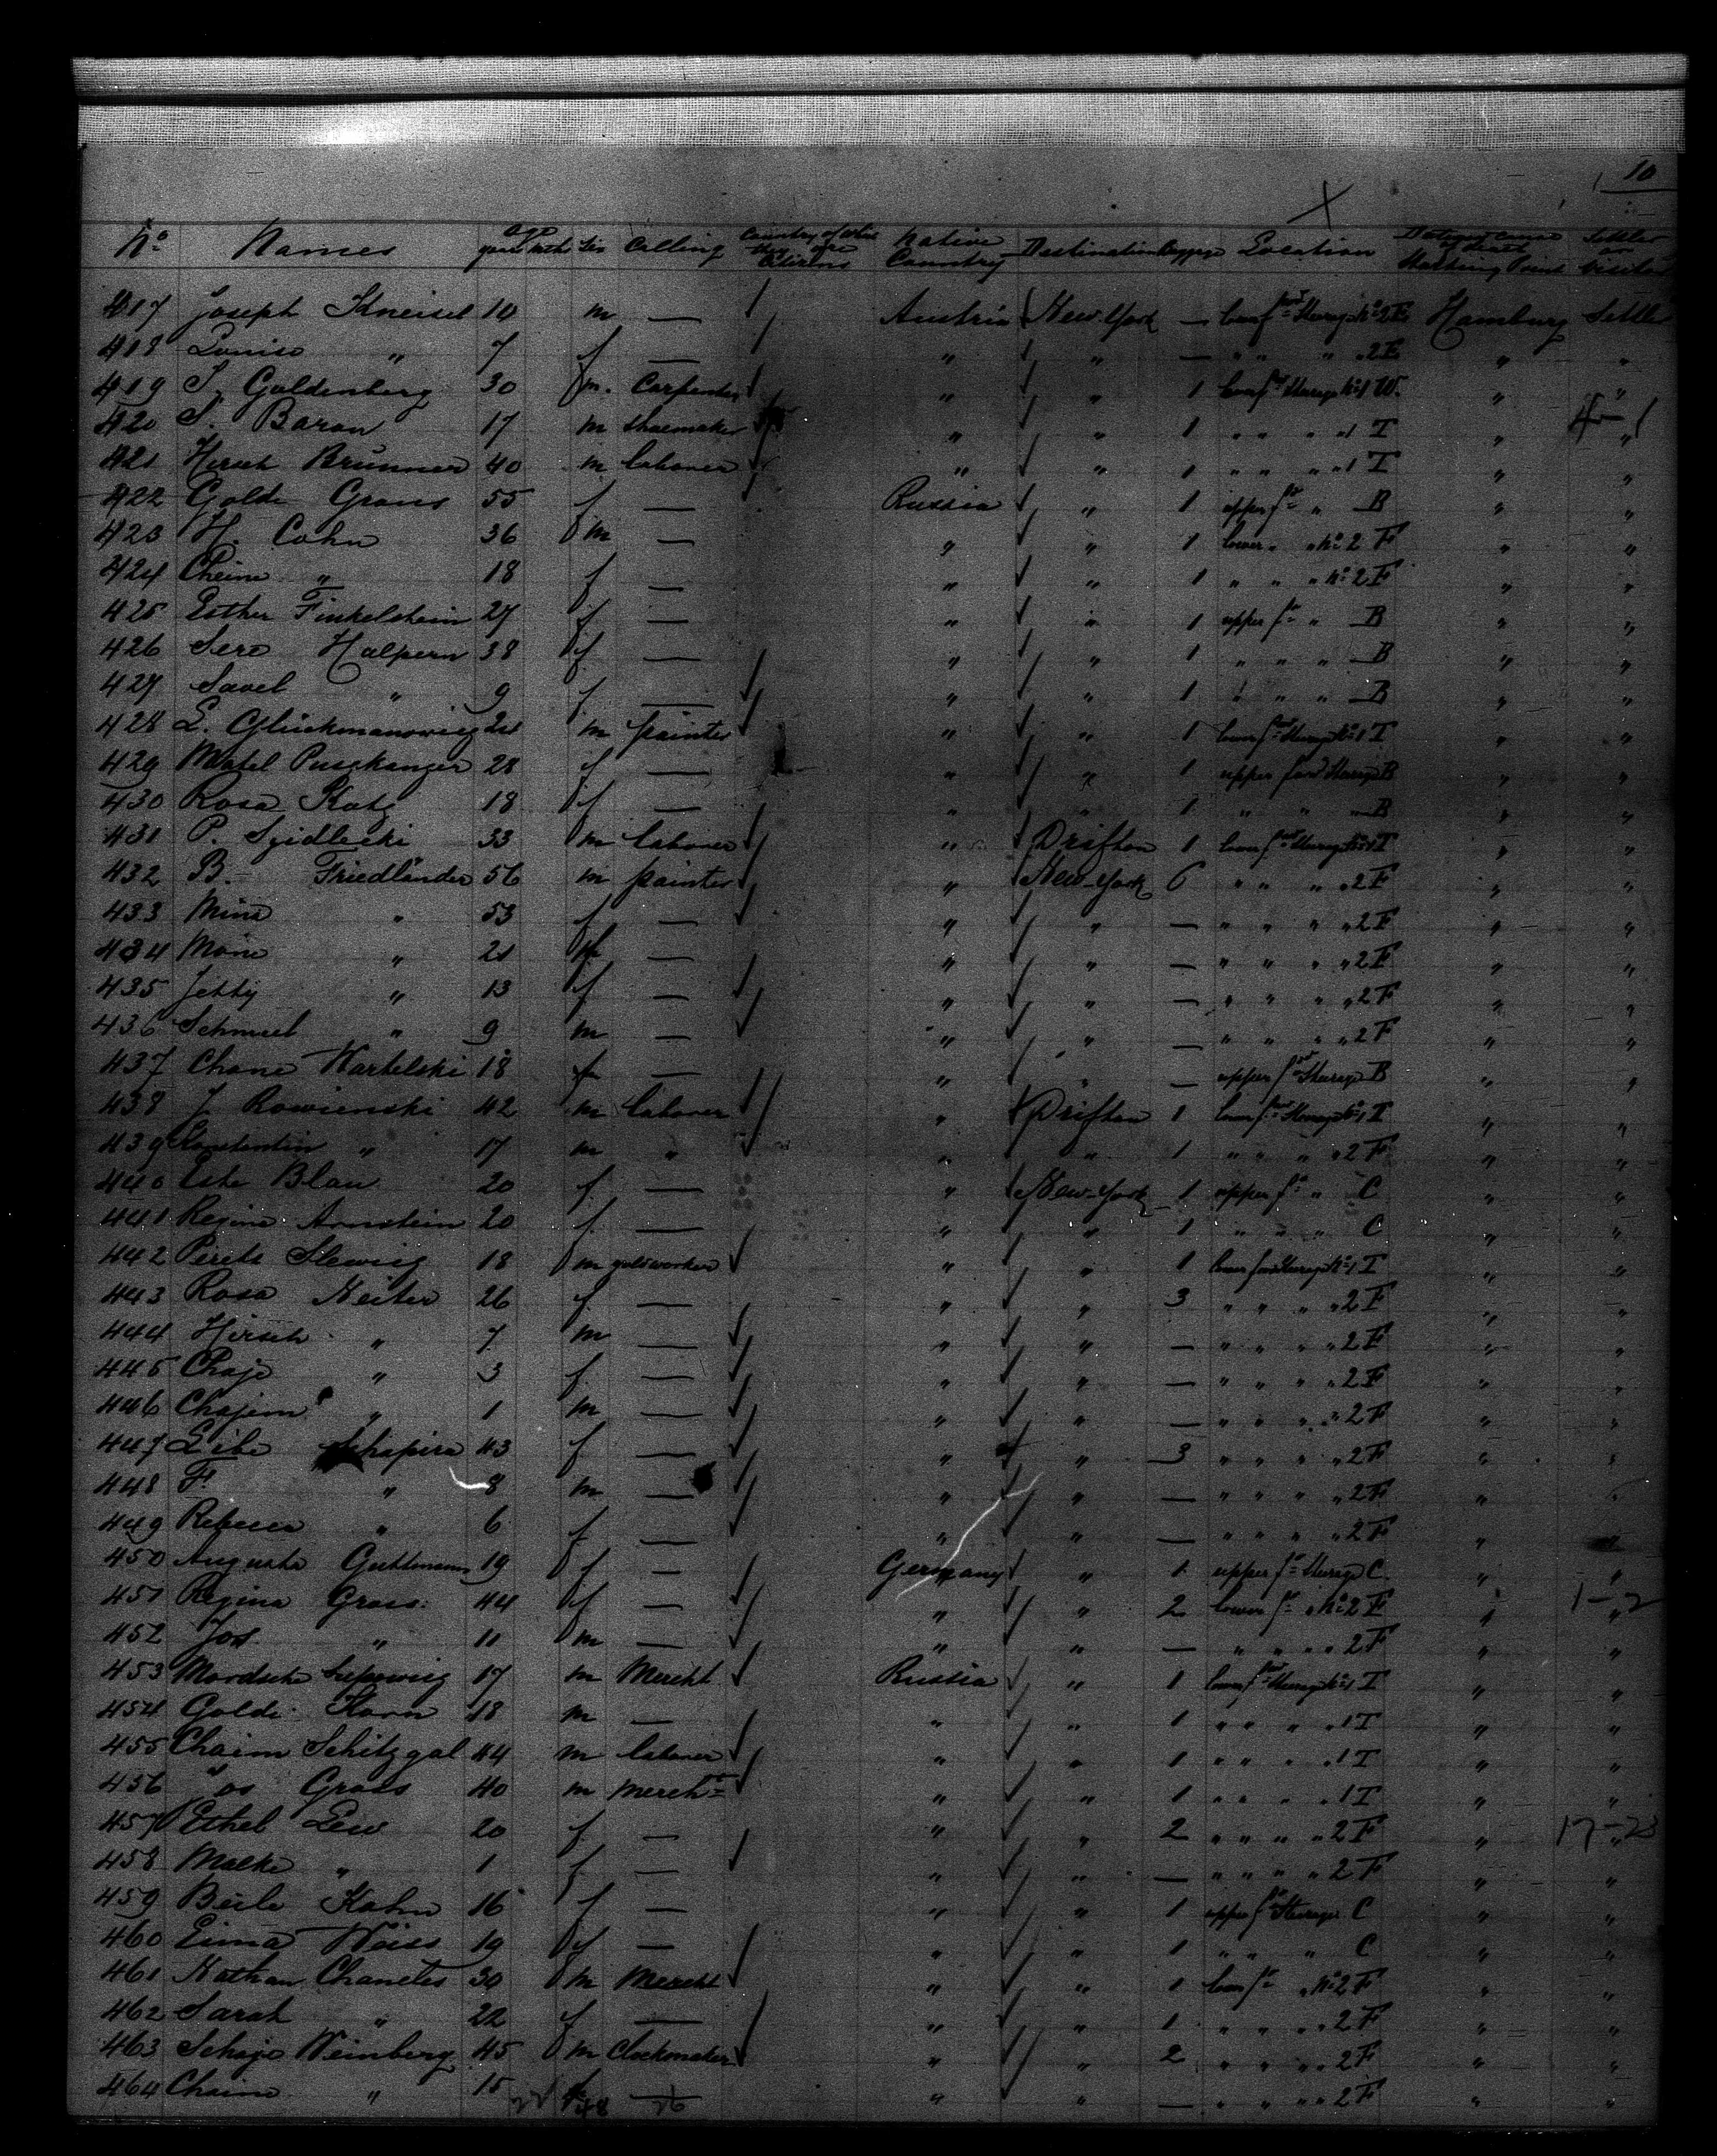 10
No Names Age years mths Sex Calling Country of which they are Citizens Native Country Destination Baggage Location Starting Point Settler or Visitor
417 Joseph Kneisel 10 m — Austria New-York — lower ford Sturage No 2 F Hamburg Settler
418 Louise " 7 f — " " — " " " " 2 F " "
419 S. Goldenberg 30 m. Carpenter " " 1 lower f Sturage No 1 W. " "
420 S. Baron 17 m Shoemaker " " 1 " " " " 1 T " "
421 Hersch Brünner 40 m labourer " " 1 " " " " 1 T " "
422 Golde Grans 55 f — Russia " 1 upper f " B " "
423 H. Cohn 36 m — " " 1 lower " " No 2 F " "
424 Cheine " 18 f — " " 1 " " " No 2 F " "
425 Esther Finkelstein 27 f — " " 1 upper f " B " "
426 Sere Halpern 38 f — " " 1 " " " B " "
427 Savel " 9 f — " " 1 " " " B " "
428 L. Glückmanowicz 21 m painter " " 1 lower ford Sturage No 1 T " "
429 28 f — " " 1 upper ford Sturage B " "
430 Rosa Katz 18 f — " " 1 " " " B " "
431 P. Szidlecki 33 m labourer " Drifton 1 lower ford Sturage No 1 T " "
432 B. Friedländer 56 m painter " New-York 6 " " " " 2 F " "
433 Mina " 53 f — " " — " " " " 2 F " "
434 " 21 f — " " — " " " " 2 F " "
435 Jetty " 13 f — " " — " " " " 2 F " "
436 Schmeel " 9 m — " " — " " " " 2 F " "
437 Chane Wartelski 18 f — " " — upper ford Sturage B " "
438 J. Rowienski 42 m labourer " Drifton 1 lower ford Sturage No 1 T " "
439 Konstantin " 17 m " " " 1 " " " " 2 F " "
440 Este Blau 20 f. — " New-York 1 upper f " C " "
441 Regine Arnstein 20 f. — " " 1 " " " C " "
442 Perets 18 m goldworker " " 1 lower ford Sturage No 1 T " "
443 Rosa 26 f. — " " 3 " " " " 2 F " "
444 Hirsch " 7 m — " " — " " " " 2 F " "
445 Chaje " 3 f. — " " — " " " " 2 F " "
446 Chajem " 1 m — " " — " " " " 2 F " "
447 Libe Schapira 43 f — " " 3 " " " " 2 F " "
448 F. " 8 m — " " — " " " " 2 F " "
449 Rebecca " 6 f — " " — " " " " 2 F " "
450 Auguste Guttmann 19 f — Germany " 1 upper f Sturage C. " "
451 Regina Gross 44 f — " " 2 lower f " No 2 F " "
452 Jos " 11 m — " " — " " " " 2 F " "
453 Mordsche 17 m Mercht Russia " 1 lower ford Sturage No 1 T " "
454 Golde Korn 18 m — " " 1 " " " " 1 T " "
455 Chaim Schitzgal 44 m labourer " " 1 " " " " 1 T " "
456 Jos Gross 40 m mercht " " 1 " " " " 1 T " "
457 Ethel Lew 20 f. — " " 2 " " " " 2 F " "
458 Malke " 1 f — " " — " " " " 2 F " "
459 Beile Kahn 16 f — " " 1 upper f Sturage C " "
460 Weiss 19 f — " " 1 " " " C " "
461 Nathan Chanetes 30 m Mercht " " 1 lower f " No 2 F " "
462 Sarah " 22 f — " " 1 " " " " 2 F " "
463 Schaje Weinberg 45 m Clockmaker " " 2 " " " " 2 F " "
464 Chaine " 15 f — " " — " " " " 2 F " "